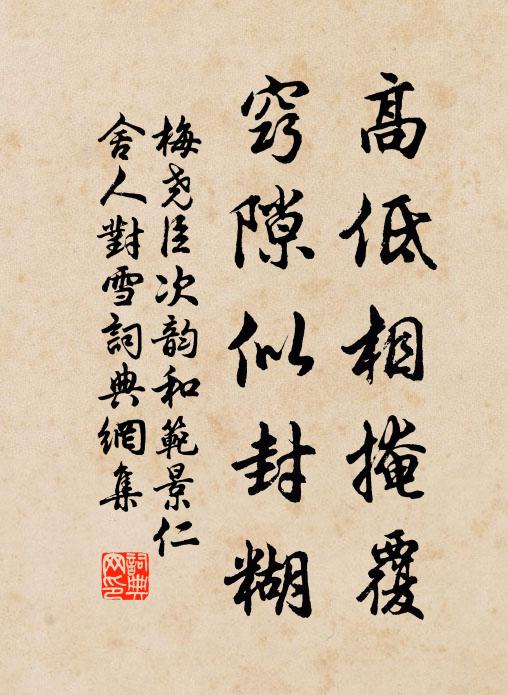 高低相掩覆
窍隙似封糊
梅尧臣次韵和範景仁
舍人對雪詞典網集
詞典
网印